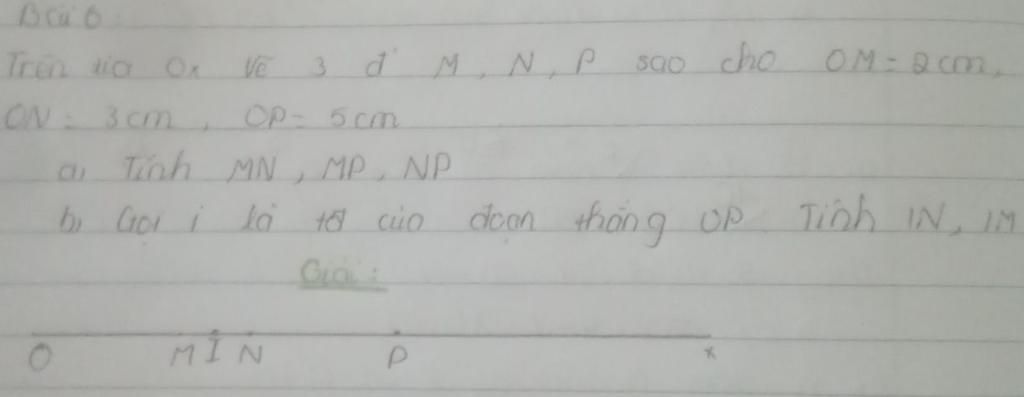 Bài 6
Trên tia Ox vẽ 3 đ' M, N, P sao cho OM = 2cm,
ON = 3cm, OP = 5cm
a, Tính MN, MP, NP
b, Gọi i là tđ của đoạn thẳng OP Tính IN, IM
Giải:
O M I N P x